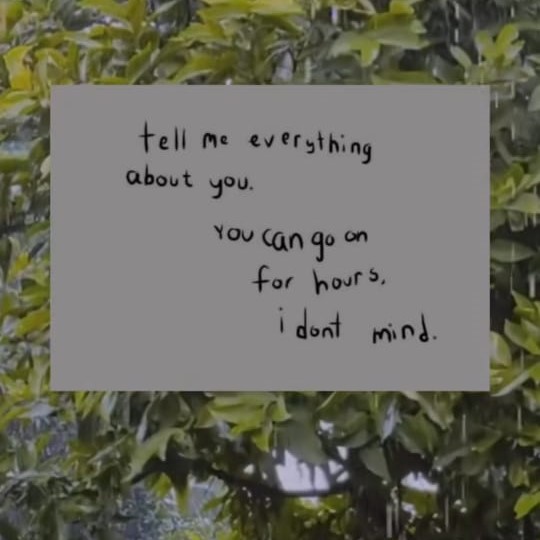 tell me everything
about you.
you can go on
for hours,
i dont mind.